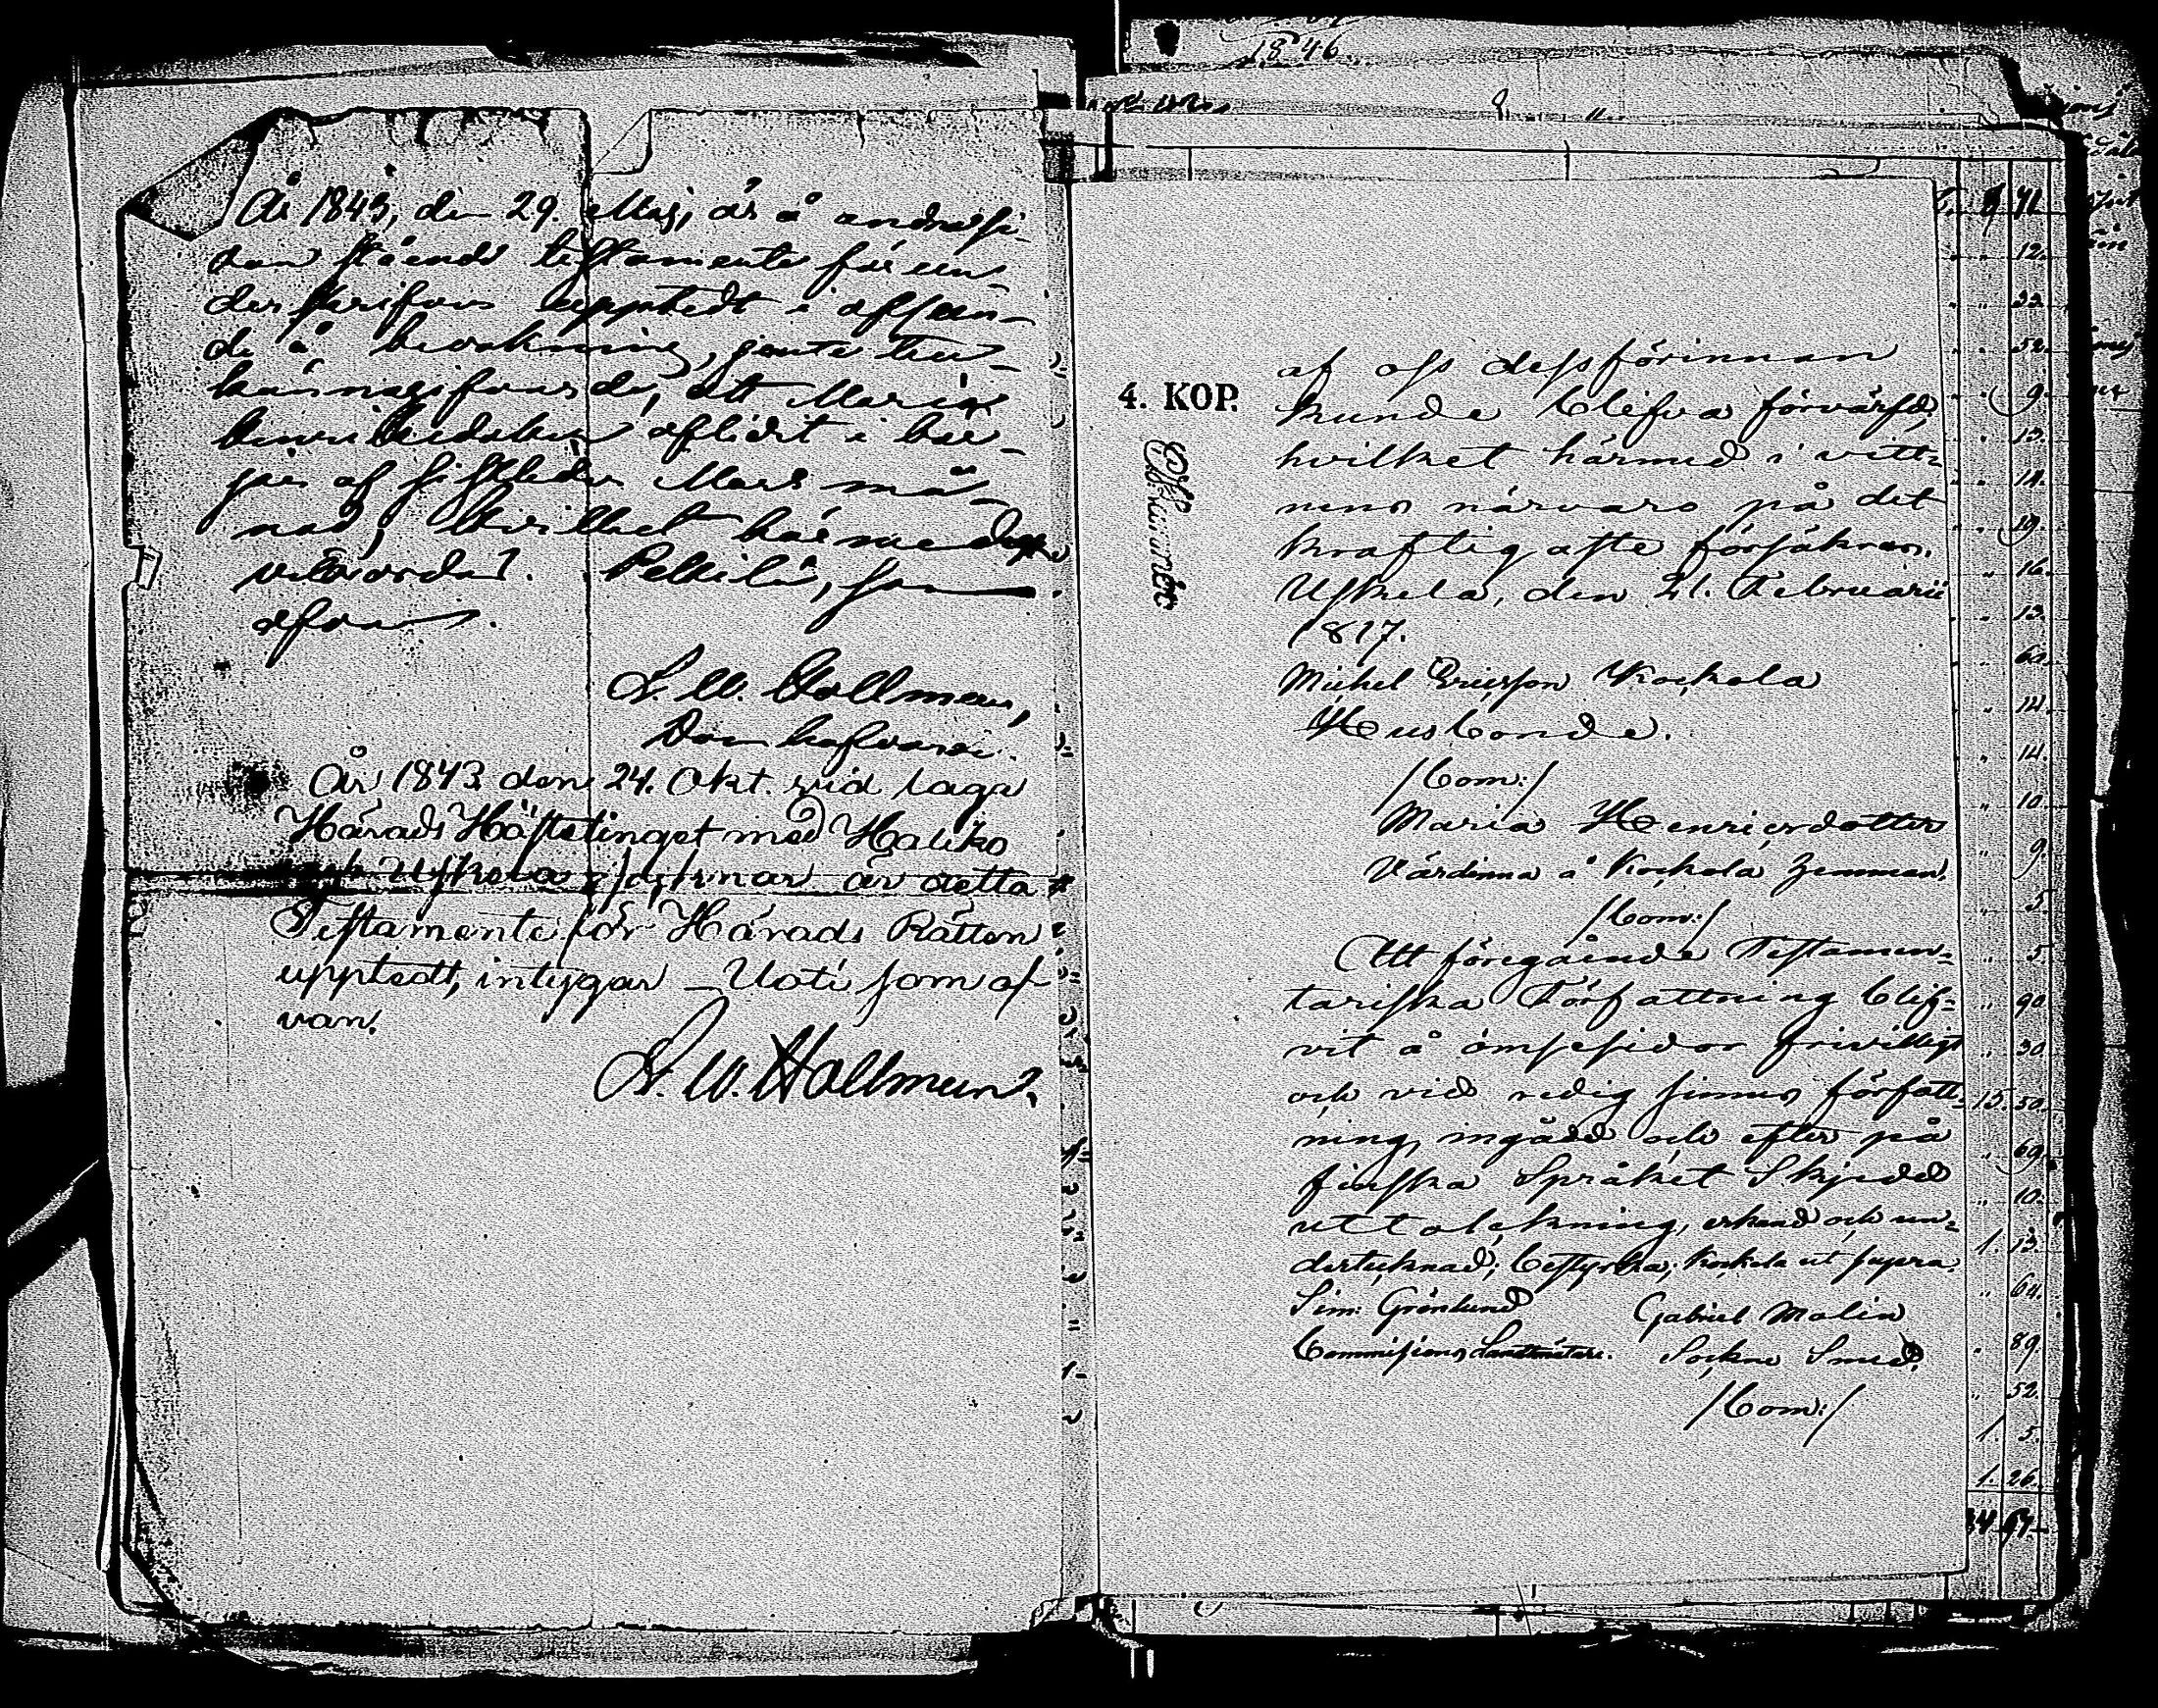 År 1843, den 29. Maj, är å andra si-
dan stående testamente för un-
derskrifven upptedt i afseen-
de å bevakning, jemte till-
kännagifvande, att Maria
Henricsdotter aflidit i bör-
jan af sistledne Mars må-
nad, hvilket härmedelst
vitsordas. Pekkilä, som
ofvan.
A. W. Hallman,
Domhafvande.
År 1843 den 24. Okt. vid laga
Härads Höstetinget med Haliko
och Uskela socknar är detta
Testamente för Härads Rätten
upptedt, intygar – Uoti som of-
van.
A. W. Hallman.
1846.
4. KOP.
af oss dessförinnan
kunde blifva förvärfd,
hvilket härmed i vitt-
nens närvaro på det
kraftigaste försäkras.
Uskela, den 21. Februarii
1817.
Michel Ericsson Kockola
Husbonde.
/bom:/
Maria Henricsdotter
Värdinna å Kockola hemman.
/bom:/
Att föregående Testamen-
tariska Författning blif-
vit å ömsesidor frivilligt
och vid redig sinnes författ-
ning, ingådd och efter på
finska Språket Skjedd
uttolckning, erkänd och un-
dertecknad; bestyrka; Kockola ut supra.
Sim: Grönlund Gabriel Malin
Commissions Landtmätare. Sockne Smed.
/bom:/
41
12.
22.
52.
9.
13.
14.
19.
16.
12.
60.
14.
14.
10.
9.
5.
5
90.
30.
15. 50.
69.
10.
1. 13.
64.
89.
52.
1. 5.
1. 26.